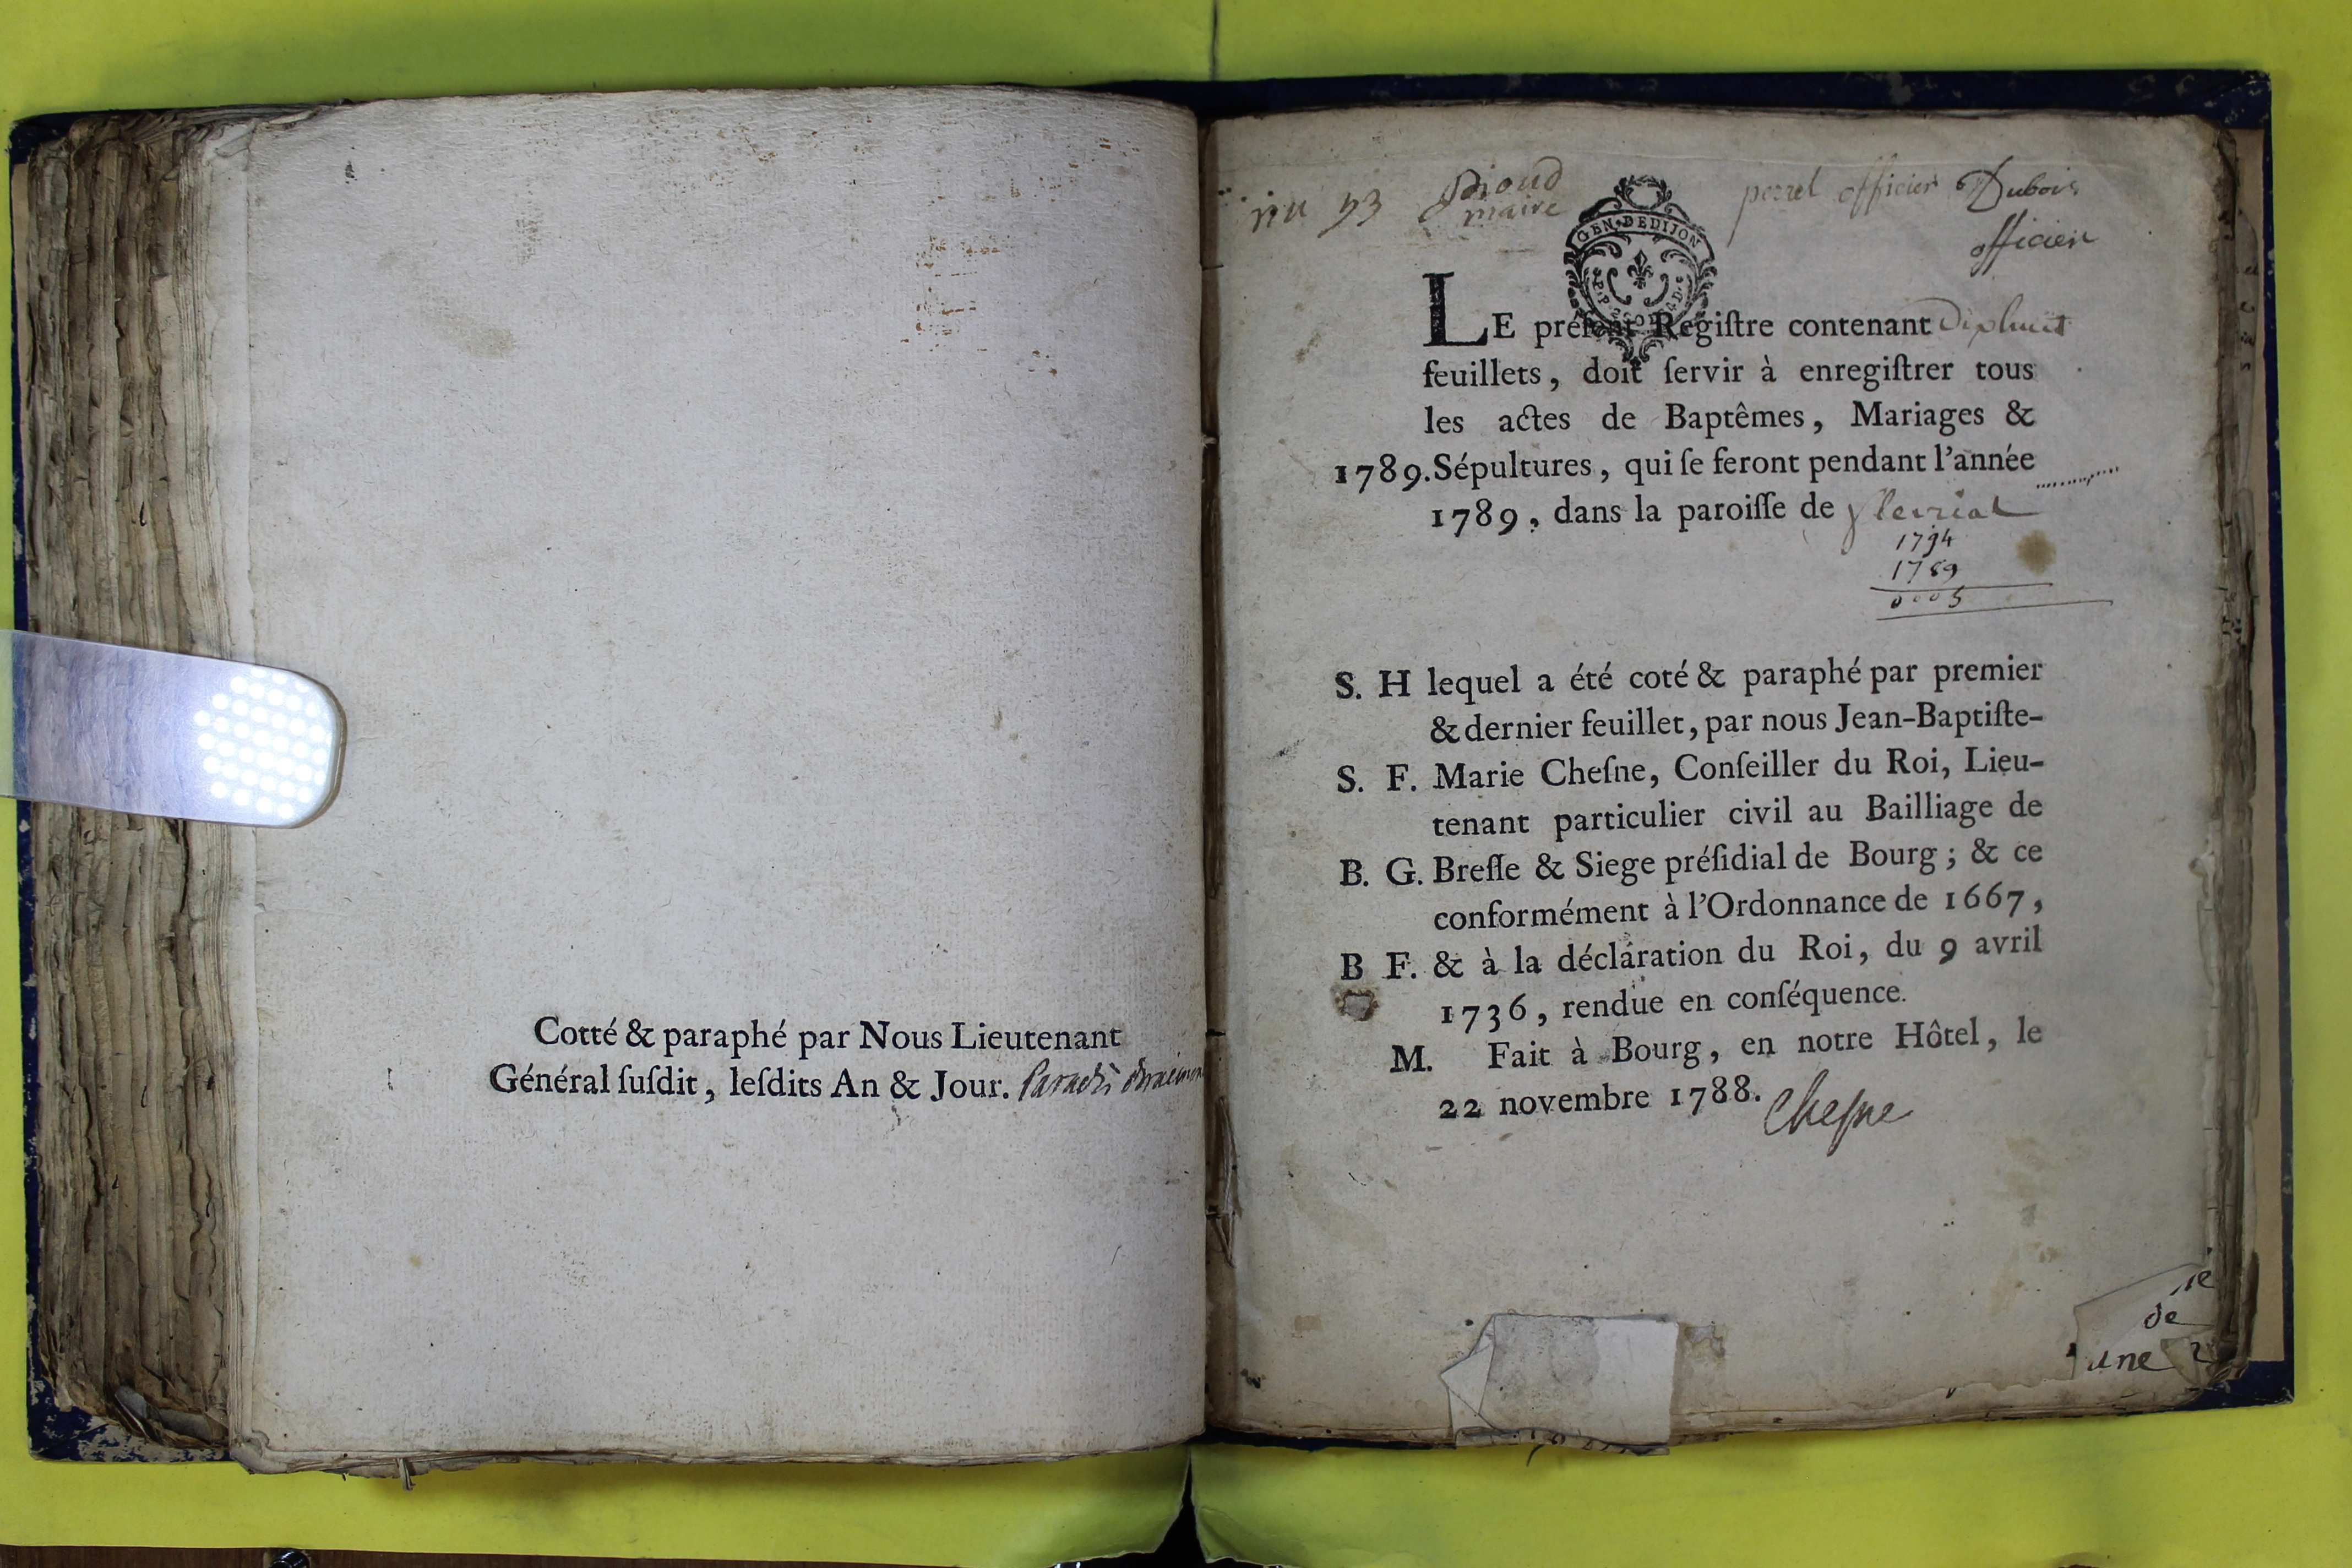 Cotté & paraphé par Nous Lieutenant
Général ſuſdit, leſdits An & Jour.
maire
perrel officier Dubois
officier
GEN·DEDIJON
LE préſent Regiſtre contenant Dixhuit
feuillets, doit ſervir à enregiſtrer tous
les actes de Baptêmes, Mariages &
1789. Sépultures, qui ſe feront pendant l'année
1789, dans la paroiſſe de fleuriat
1794
1789
0005
S. H lequel a été coté & paraphé par premier
& dernier feuillet, par nous Jean-Baptiſte-
S. F. Marie Cheſne, Conſeiller du Roi, Lieu-
tenant particulier civil au Bailliage de
B. G. Breſſe & Siege préſidial de Bourg; & ce
conformément à l'Ordonnance de 1667,
B F. & à la déclaration du Roi, du 9 avril
1736, rendue en conſéquence.
M. Fait à Bourg, en notre Hôtel, le
22 novembre 1788. Cheſne
de
une